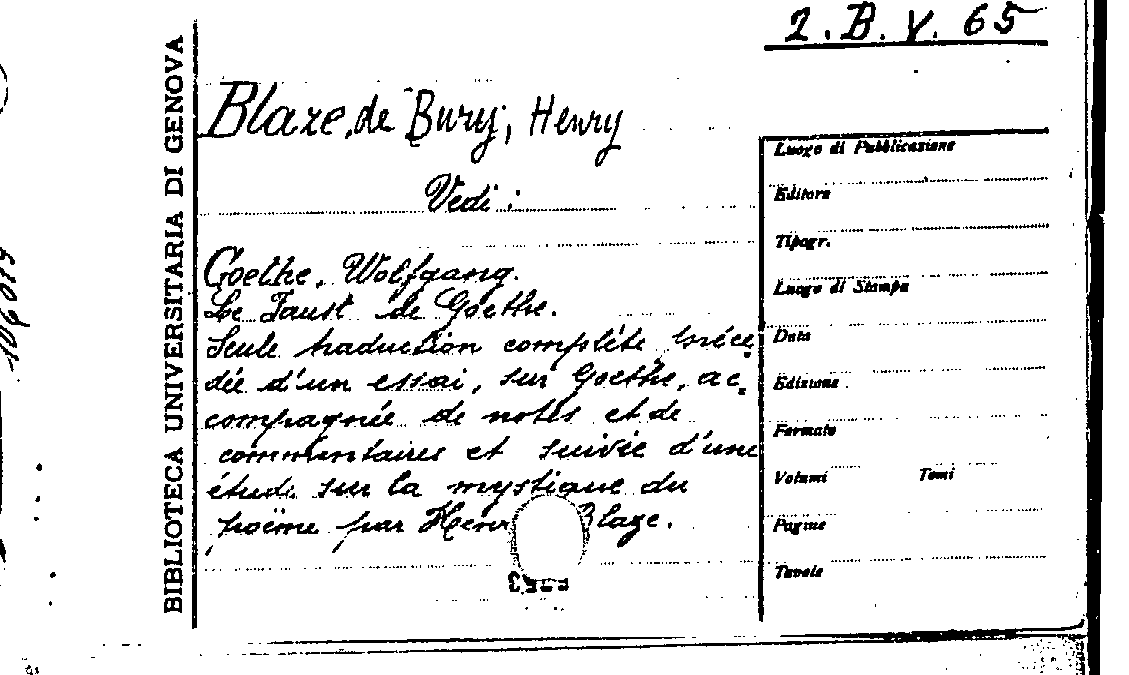 2. B. V. 65
BIBLIOTECA UNIVERSITARIA DI GENOVA
Blaze, de Bury, Henry
Vedi :
Goethe, Wolfgang.
Le Faust de Goethe.
Seule traduction complète, précé
dée d'un essai, sur Goethe, ac=
compagnée de notes et de
commentaires et suivie d'une
étude sur la mystique du
poëme par Henr Blaze.
Luogo di Pubblicazione
Editore
Tipogr.
Luogo di Stampa
Data
Edizione
Formato
Volumi Tomi
Pagine
Tavole